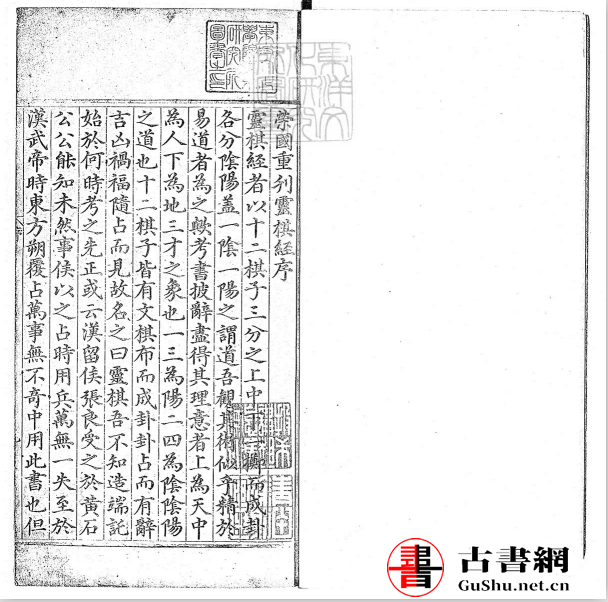 榮國重刋靈棋經序
靈棋經者以十二棋子三分之上中下一擲而成卦
各分陰陽盖一陰一陽之謂道吾觀其術似乎精於
易道者為之歟考書披辭盡得其理意者上為天中
為人下為地三才之象也一三為陽二四為陰陰陽
之道也十二棋子皆有文棋布而成卦卦占而有辭
吉凶禍福隨占而見故名之曰靈棋吾不知造端託
始於何時考之先正或云漢留侯張良受之於黃石
公公能知未然事侯以之占時用兵萬無一失至於
漢武帝時東方朔覆占萬事無不奇中用此書也但
古書網
GuShu.net.cn